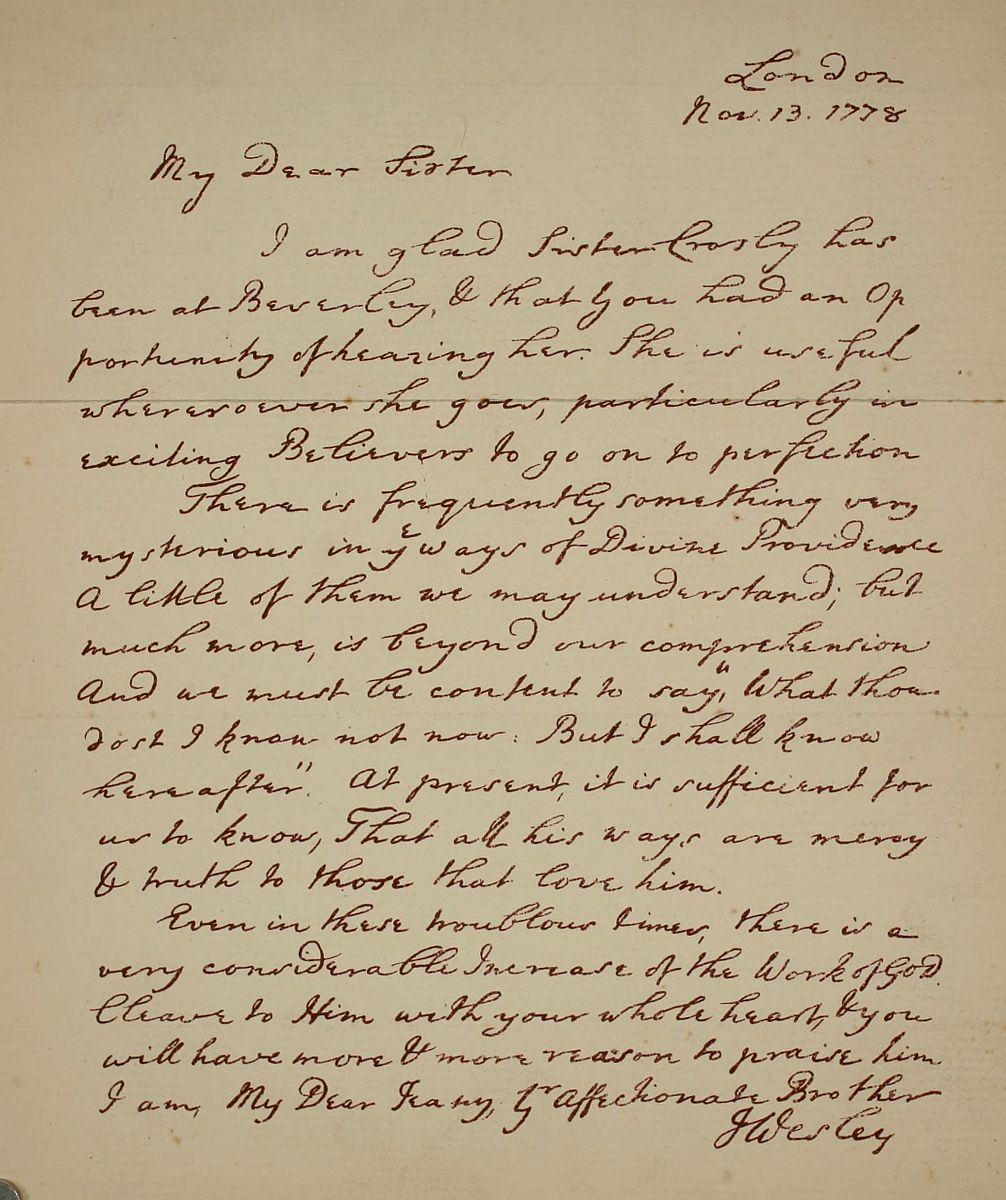 London
Nov. 13. 1778
My Dear Sister
I am glad Sister Crosby has
been at Beverley, & that you had an Op
portunity of hearing her. She is useful
wheresoever she goes, particularly in
exciting Believers to go on to perfection
There is frequently something very
mysterious in yᵉ ways of Divine Providence
A little of them we may understand; but
much more, is beyond our comprehension
And we must be content to say, "What thou
dost I know not now: But I shall know
hereafter". At present, it is sufficient for
us to know, That all his ways are mercy
& truth to those that love him.
Even in these troublous times, there is a
very considerable Increase of the Work of GOD.
Cleave to Him with your whole heart, & you
will have more & more reason to praise him
I am, My Dear Jenny, Yʳ Affectionate Brother
JWesley